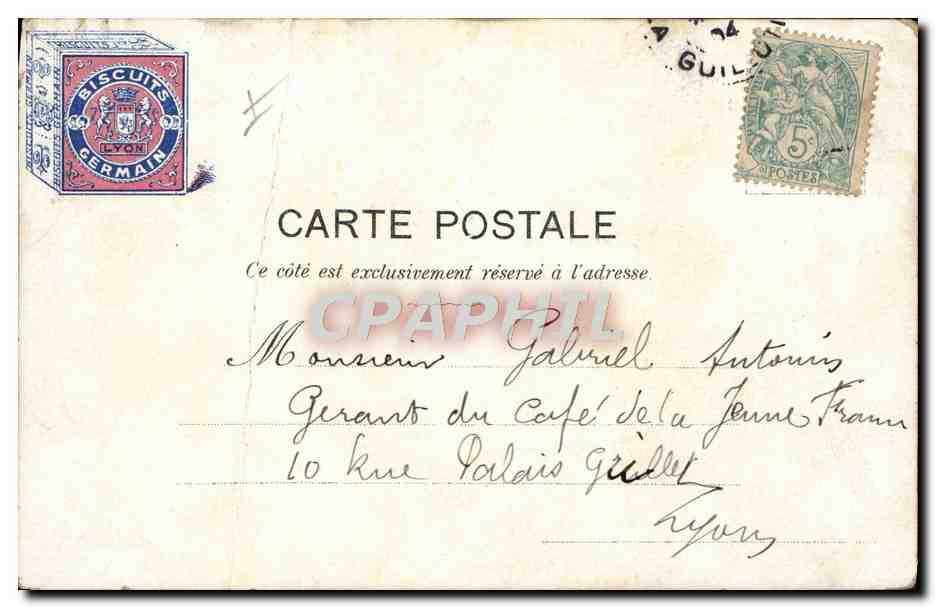 BISCUITS
BISCUITS
LYON
GERMAIN
04
GUIL
5
POSTES
CARTE POSTALE
Ce côté est exclusivement réservé à l'adresse.
CPAPHIL
Monsieur Gabriel Antonin
Gerant du Café de la Jeune France
10 Rue Palais Grillet
Lyon